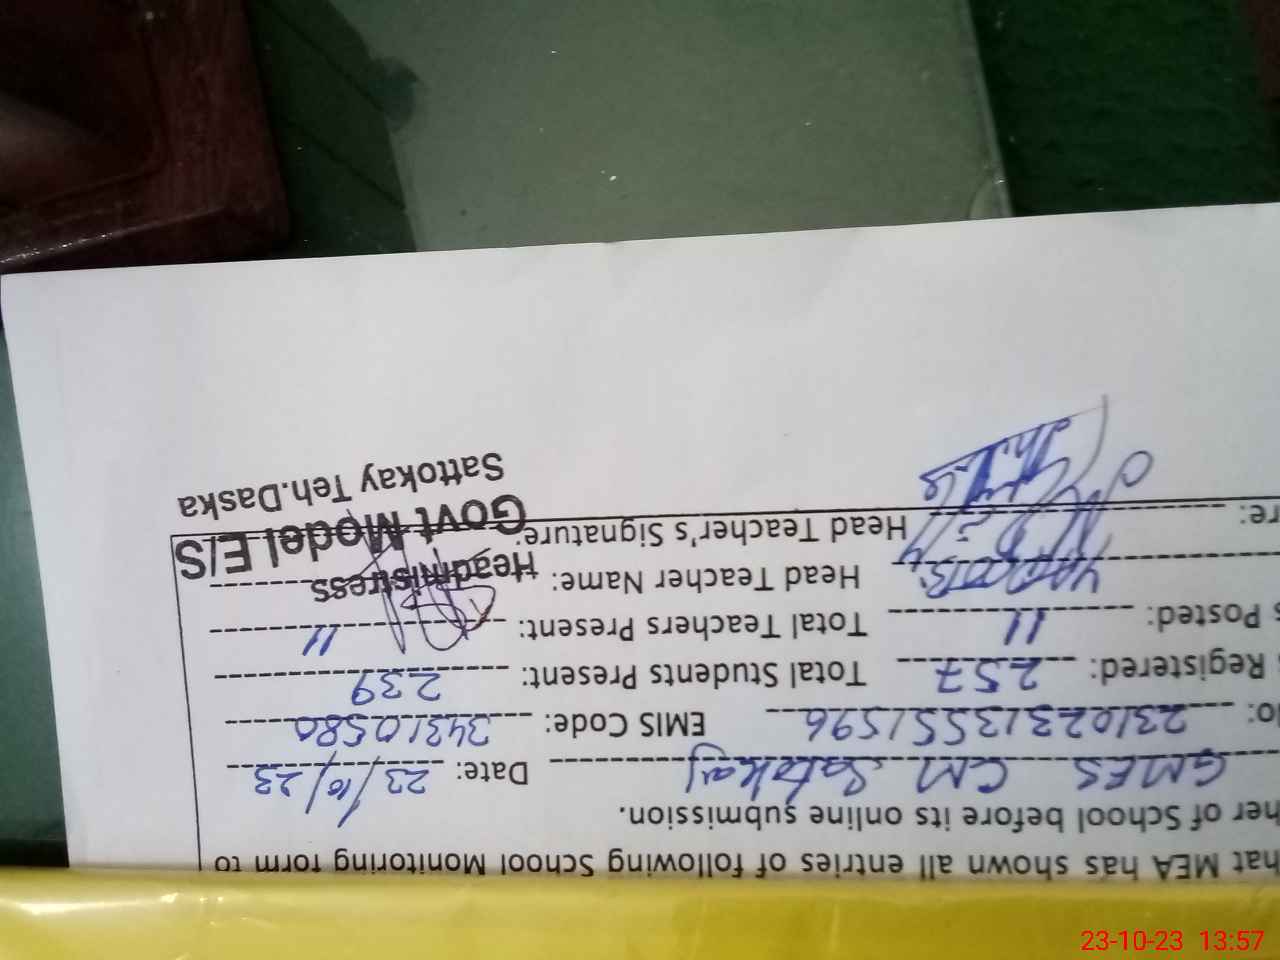 hat MEA has shown all entries of following School Monitoring form to
her of School before its online submission.
GMES CM Satokay Date: 23/10/23
o: 231023135551596 EMIS Code: 34310580
Registered: 257 Total Students Present: 239
s Posted: 11 Total Teachers Present: 11
Head Teacher Name:
re: Head Teacher's Signature:
Headmistress
Govt Model E/S
Sattokay Teh.Daska
23-10-23 13:57